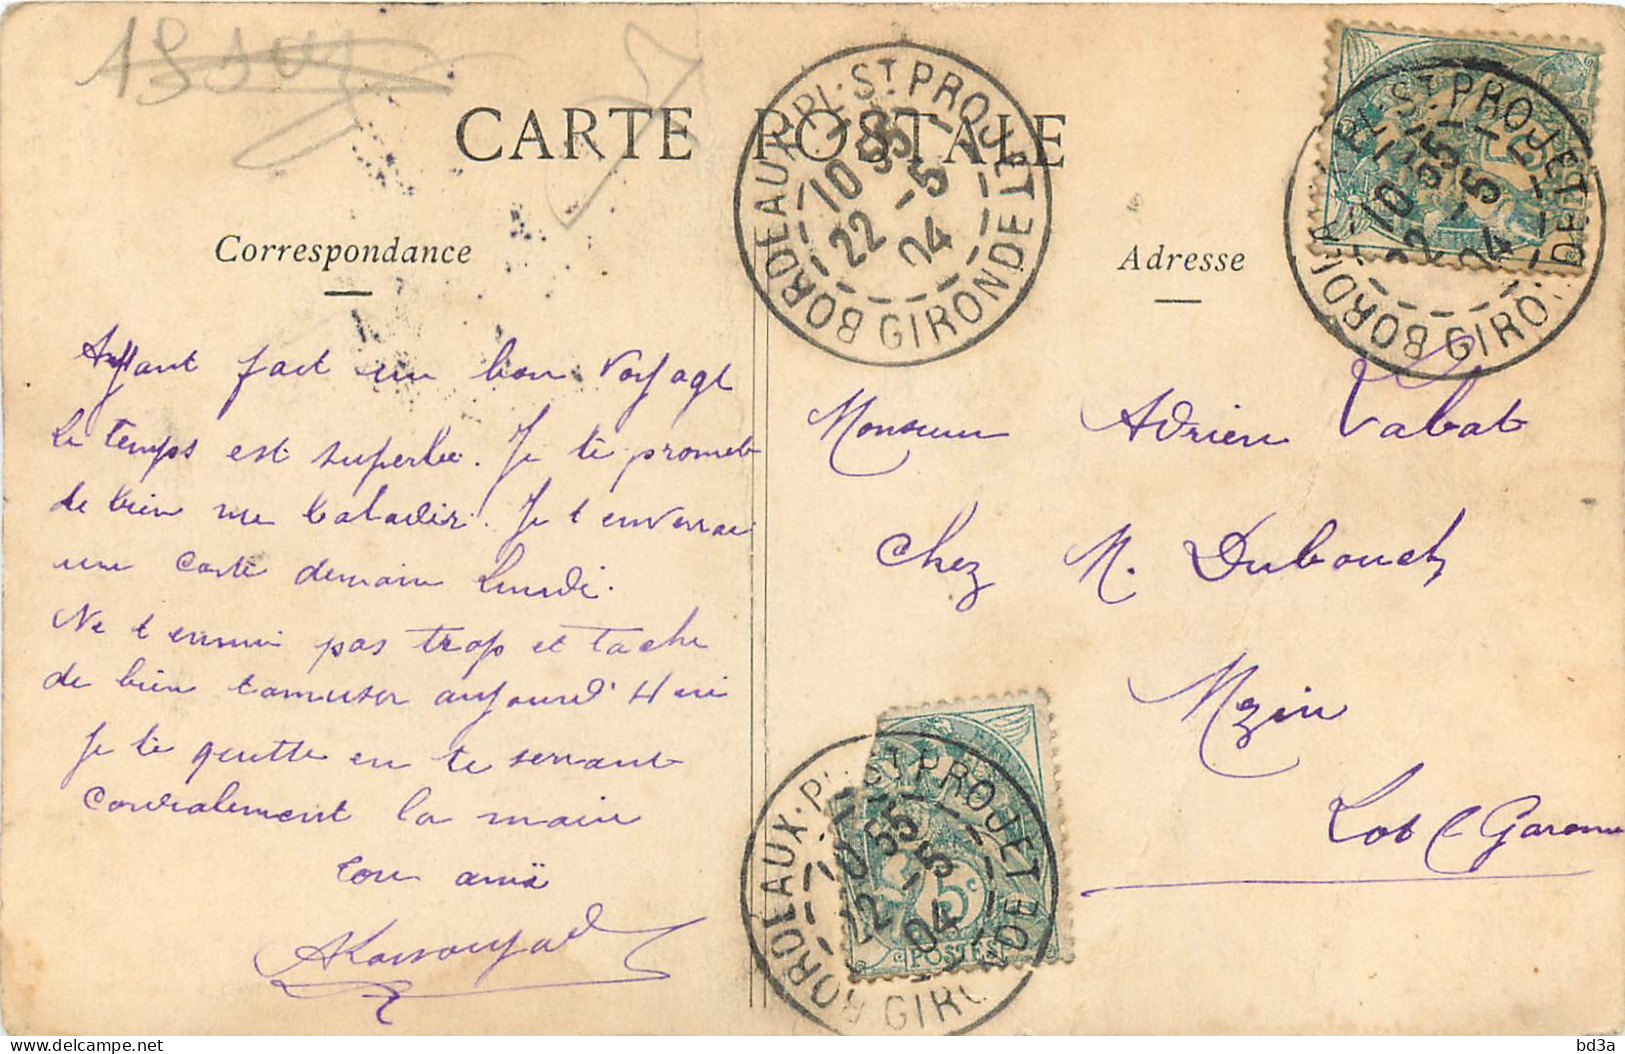 CARTE POSTALE
Correspondance
Ayant fait un bon voyage
le temps est superbe. Je te promet
de bien me balader. Je t enverrai
une carte demain Lundi.
Ne t ennui pas trop et tache
de bien t amuser aujourd'hui
Je te quitte en te serrant
cordialement la main
ton ami
Adresse
Monsieur Adrien Labat
Chez M. Dubouch
Mézin
Lot & Garonne
BORDEAUX-PL. ST PROJET
10 55
22 -5
04
GIRONDE
BORDEAUX-PL. ST PROJET
10 55
22 -5
04
GIRONDE
BORDEAUX-PL. ST PROJET
10 55
22 -5
04
GIRONDE
5c
POSTES
bd3a